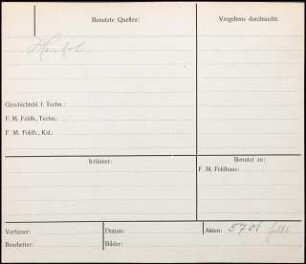 Benutzte Quellen:
Vergebens durchsucht:
Geschichtsbl. f. Techn.:
F. M. Feldh., Techn:
F. M. Feldh., Kal.:
Irrtümer:
Benutzt zu:
F. M. Feldhaus:
Verfasser:
Datum:
Akten: 5708
Bearbeiter:
Bilder: